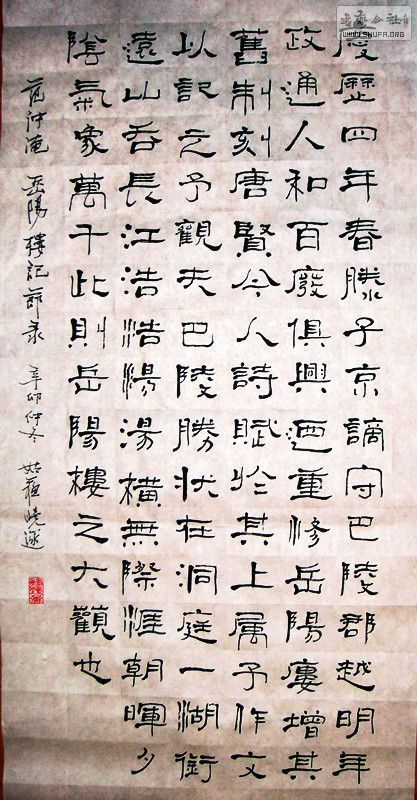 慶歷四年春滕子京謫守巴陵郡越明年
政通人和百廢俱興迺重修岳陽廔增其
舊制刻唐賢今人詩賦於其上属予作文
以記之予觀夫巴陵勝狀在洞庭一湖銜
遠山吞長江浩浩湯湯橫無際涯朝暉夕
陰氣象萬千此則岳陽樓之大觀也
范仲淹 岳陽樓記節录 辛卯仲冬 姑蘇曉
WWW.SHUFA.ORG